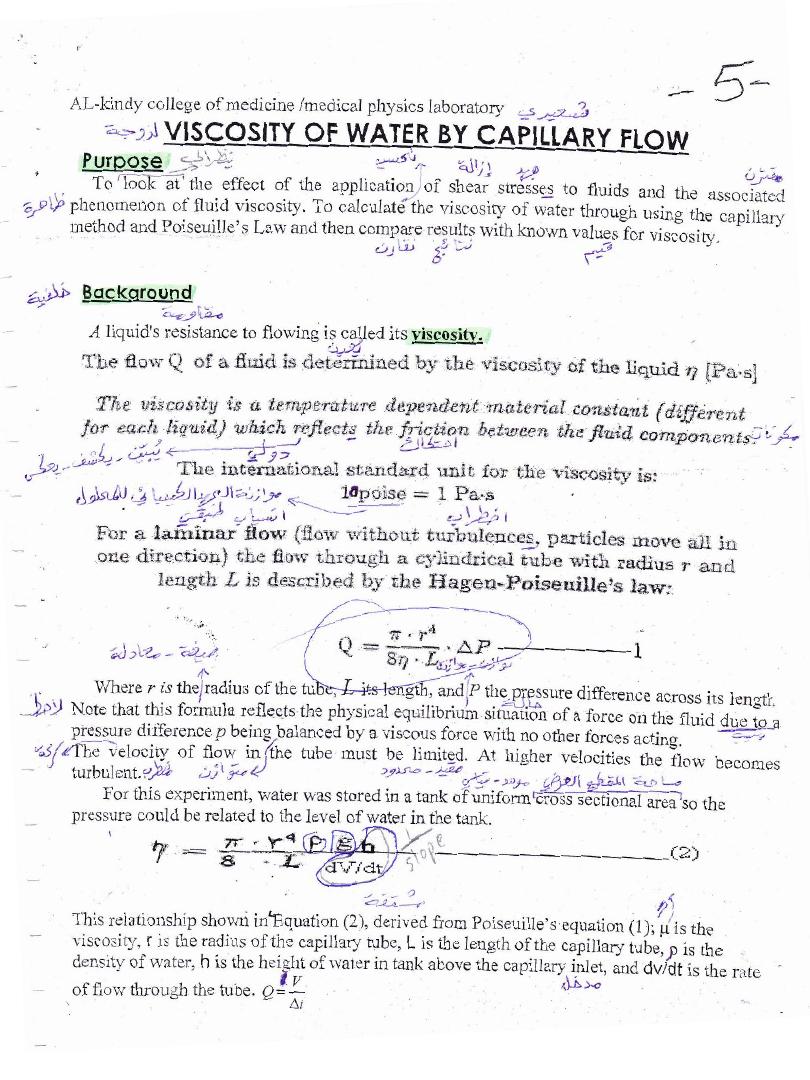 - 5 -
AL-kindy college of medicine /medical physics laboratory شعيري
لزوجة VISCOSITY OF WATER BY CAPILLARY FLOW
Purpose
إزالة جهد مقترن
To look at the effect of the application of shear stresses to fluids and the associated
ظاهرة phenomenon of fluid viscosity. To calculate the viscosity of water through using the capillary
method and Poiseuille's Law and then compare results with known values for viscosity.
نقارن نتائج قيم
خلفية Background
مقاومة
A liquid's resistance to flowing is called its viscosity.
The flow Q of a fluid is determined by the viscosity of the liquid η [Pa·s]
The viscosity is a temperature dependent material constant (different
for each liquid) which reflects the friction between the fluid components. مكونات
يثبت - يكشف - يعطي دولي احتكاك
The international standard unit for the viscosity is:
10poise = 1 Pa·s
انسياب طبقي اضطراب
For a laminar flow (flow without turbulences, particles move all in
one direction) the flow through a cylindrical tube with radius r and
length L is described by the Hagen-Poiseuille's law:
Q = π · r⁴ / 8η · L · ΔP ———— 1
صيغة - معادلة
Where r is the radius of the tube, L its length, and P the pressure difference across its length.
لاحظ Note that this formula reflects the physical equilibrium situation of a force on the fluid due to a
pressure difference p being balanced by a viscous force with no other forces acting.
The velocity of flow in the tube must be limited. At higher velocities the flow becomes
turbulent. متوازن مقيد - محدود مساحة المقطع العرضي
For this experiment, water was stored in a tank of uniform cross sectional area so the
pressure could be related to the level of water in the tank.
η = π · r⁴ ρ g h / 8 · L dV/dt ———— (2)
slope
مشتقة
This relationship shown in Equation (2), derived from Poiseuille's equation (1); μ is the
viscosity, r is the radius of the capillary tube, L is the length of the capillary tube, ρ is the
density of water, h is the height of water in tank above the capillary inlet, and dv/dt is the rate
مدخل
of flow through the tube. Q= V / Δt